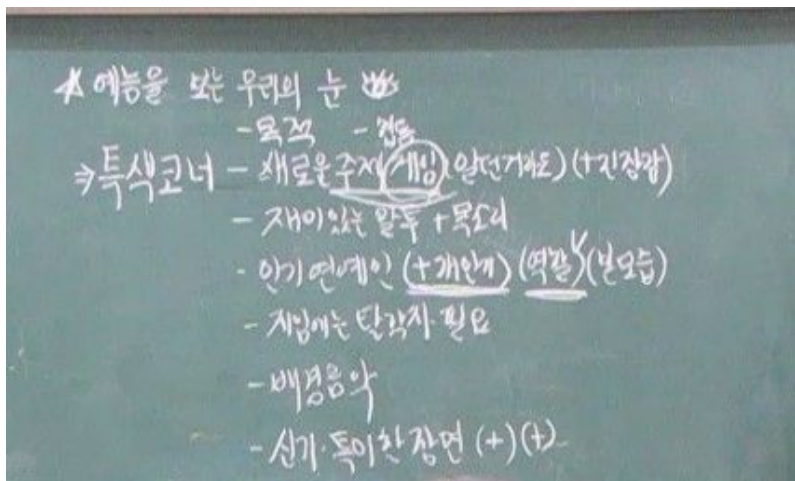 예능을 보는 우리의 눈
- 목적 - 감동
⇒ 특색코너 - 새로운 주제 게임 (알던거라도) (+긴장감)
- 재미있는 말투 + 목소리
- 인기 연예인 (+개인기) (역할) (본모습)
- 게임에는 탈락자 필요
- 배경음악
- 신기·특이한 장면 (+) (+)